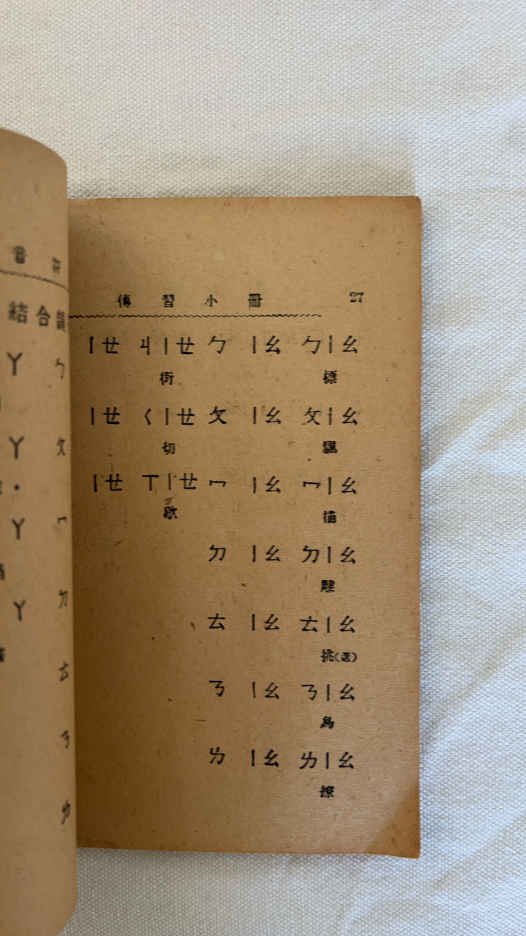 音 符
結合韻
ㄚ ㄅ
ㄚ ㄆ
ㄚ ㄇ
ㄚ ㄉ
ㄊ
ㄋ
ㄌ
傳 習 小 冊 27
ㄧㄝ ㄐㄧㄝ ㄅ ㄧㄠ ㄅㄧㄠ
街 標
ㄧㄝ ㄑㄧㄝ ㄆ ㄧㄠ ㄆㄧㄠ
切 飄
ㄧㄝ ㄒㄧㄝ ㄇ ㄧㄠ ㄇㄧㄠ
歇 描
ㄉ ㄧㄠ ㄉㄧㄠ
雕
ㄊ ㄧㄠ ㄊㄧㄠ
挑(選)
ㄋ ㄧㄠ ㄋㄧㄠ
鳥
ㄌ ㄧㄠ ㄌㄧㄠ
撩